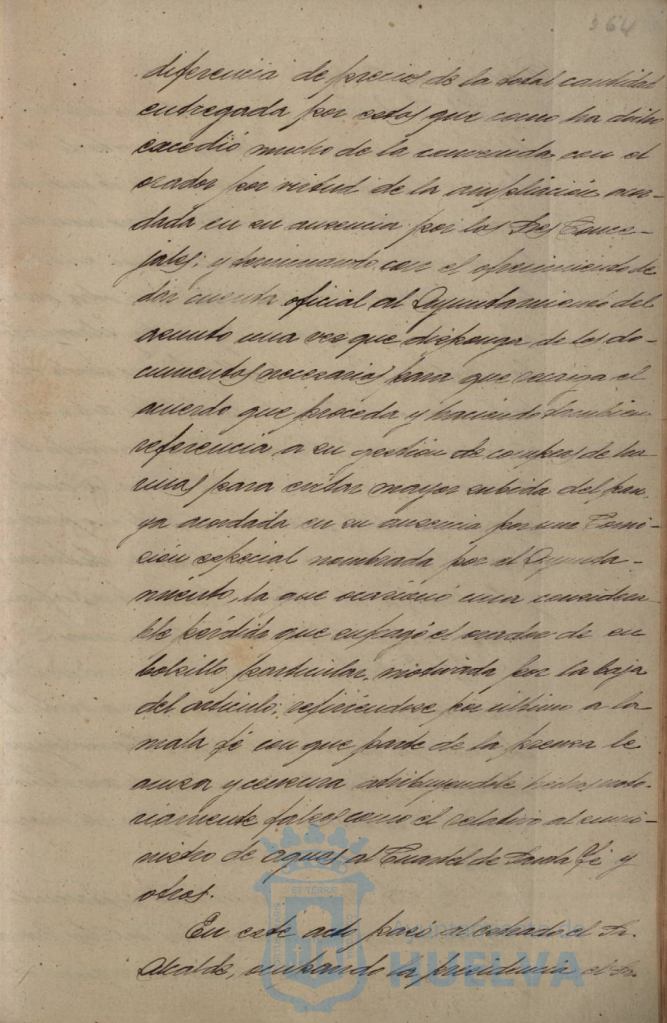 364
diferencia de precios de la total cantidad
entregada por estos que como ha dicho
excedió mucho de la convenida con el
orador por virtud de la ampliación acor-
dada en su ausencia por los Sres Conce-
jales; y terminando con el ofrecimiento de
dar cuenta oficial al Ayuntamiento del
asunto una vez que disponga de los do-
cumentos necesarios para que recaiga el
acuerdo que proceda y haciendo tambien
referencia a su gestión de compras de ha-
rinas para evitar mayor subida del pan
ya acordada en su ausencia por una Comi-
sión especial nombrada por el Ayunta-
miento, la que ocasionó una considera-
ble pérdida que enjugó el orador de su
bolsillo particular, motivada por la baja
del artículo; refiriéndose por último a la
mala fé con que parte de la prensa le
acusa y censura atribuyendole hechos noto-
riamente falsos como el relativo al sumi-
nistro de aguas al Cuartel de Santa Fé y
otros.
En este acto pasó al estrado el Sr.
Alcalde, ocupando la presidencia el Sr.
HUELVA